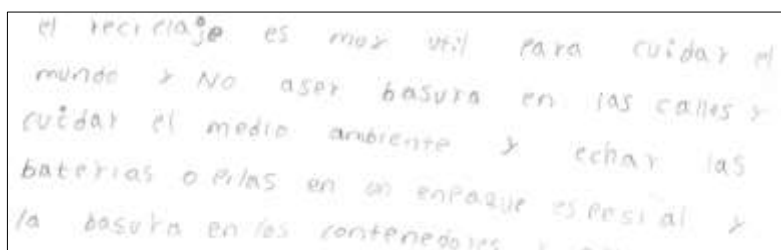 el reciclaje es moy util para cuidar el
mundo y No aser basura en las calles y
cuidar el medio ambiente y echar las
baterias o pilas en un enpaque espesial y
la basura en los contenedores y